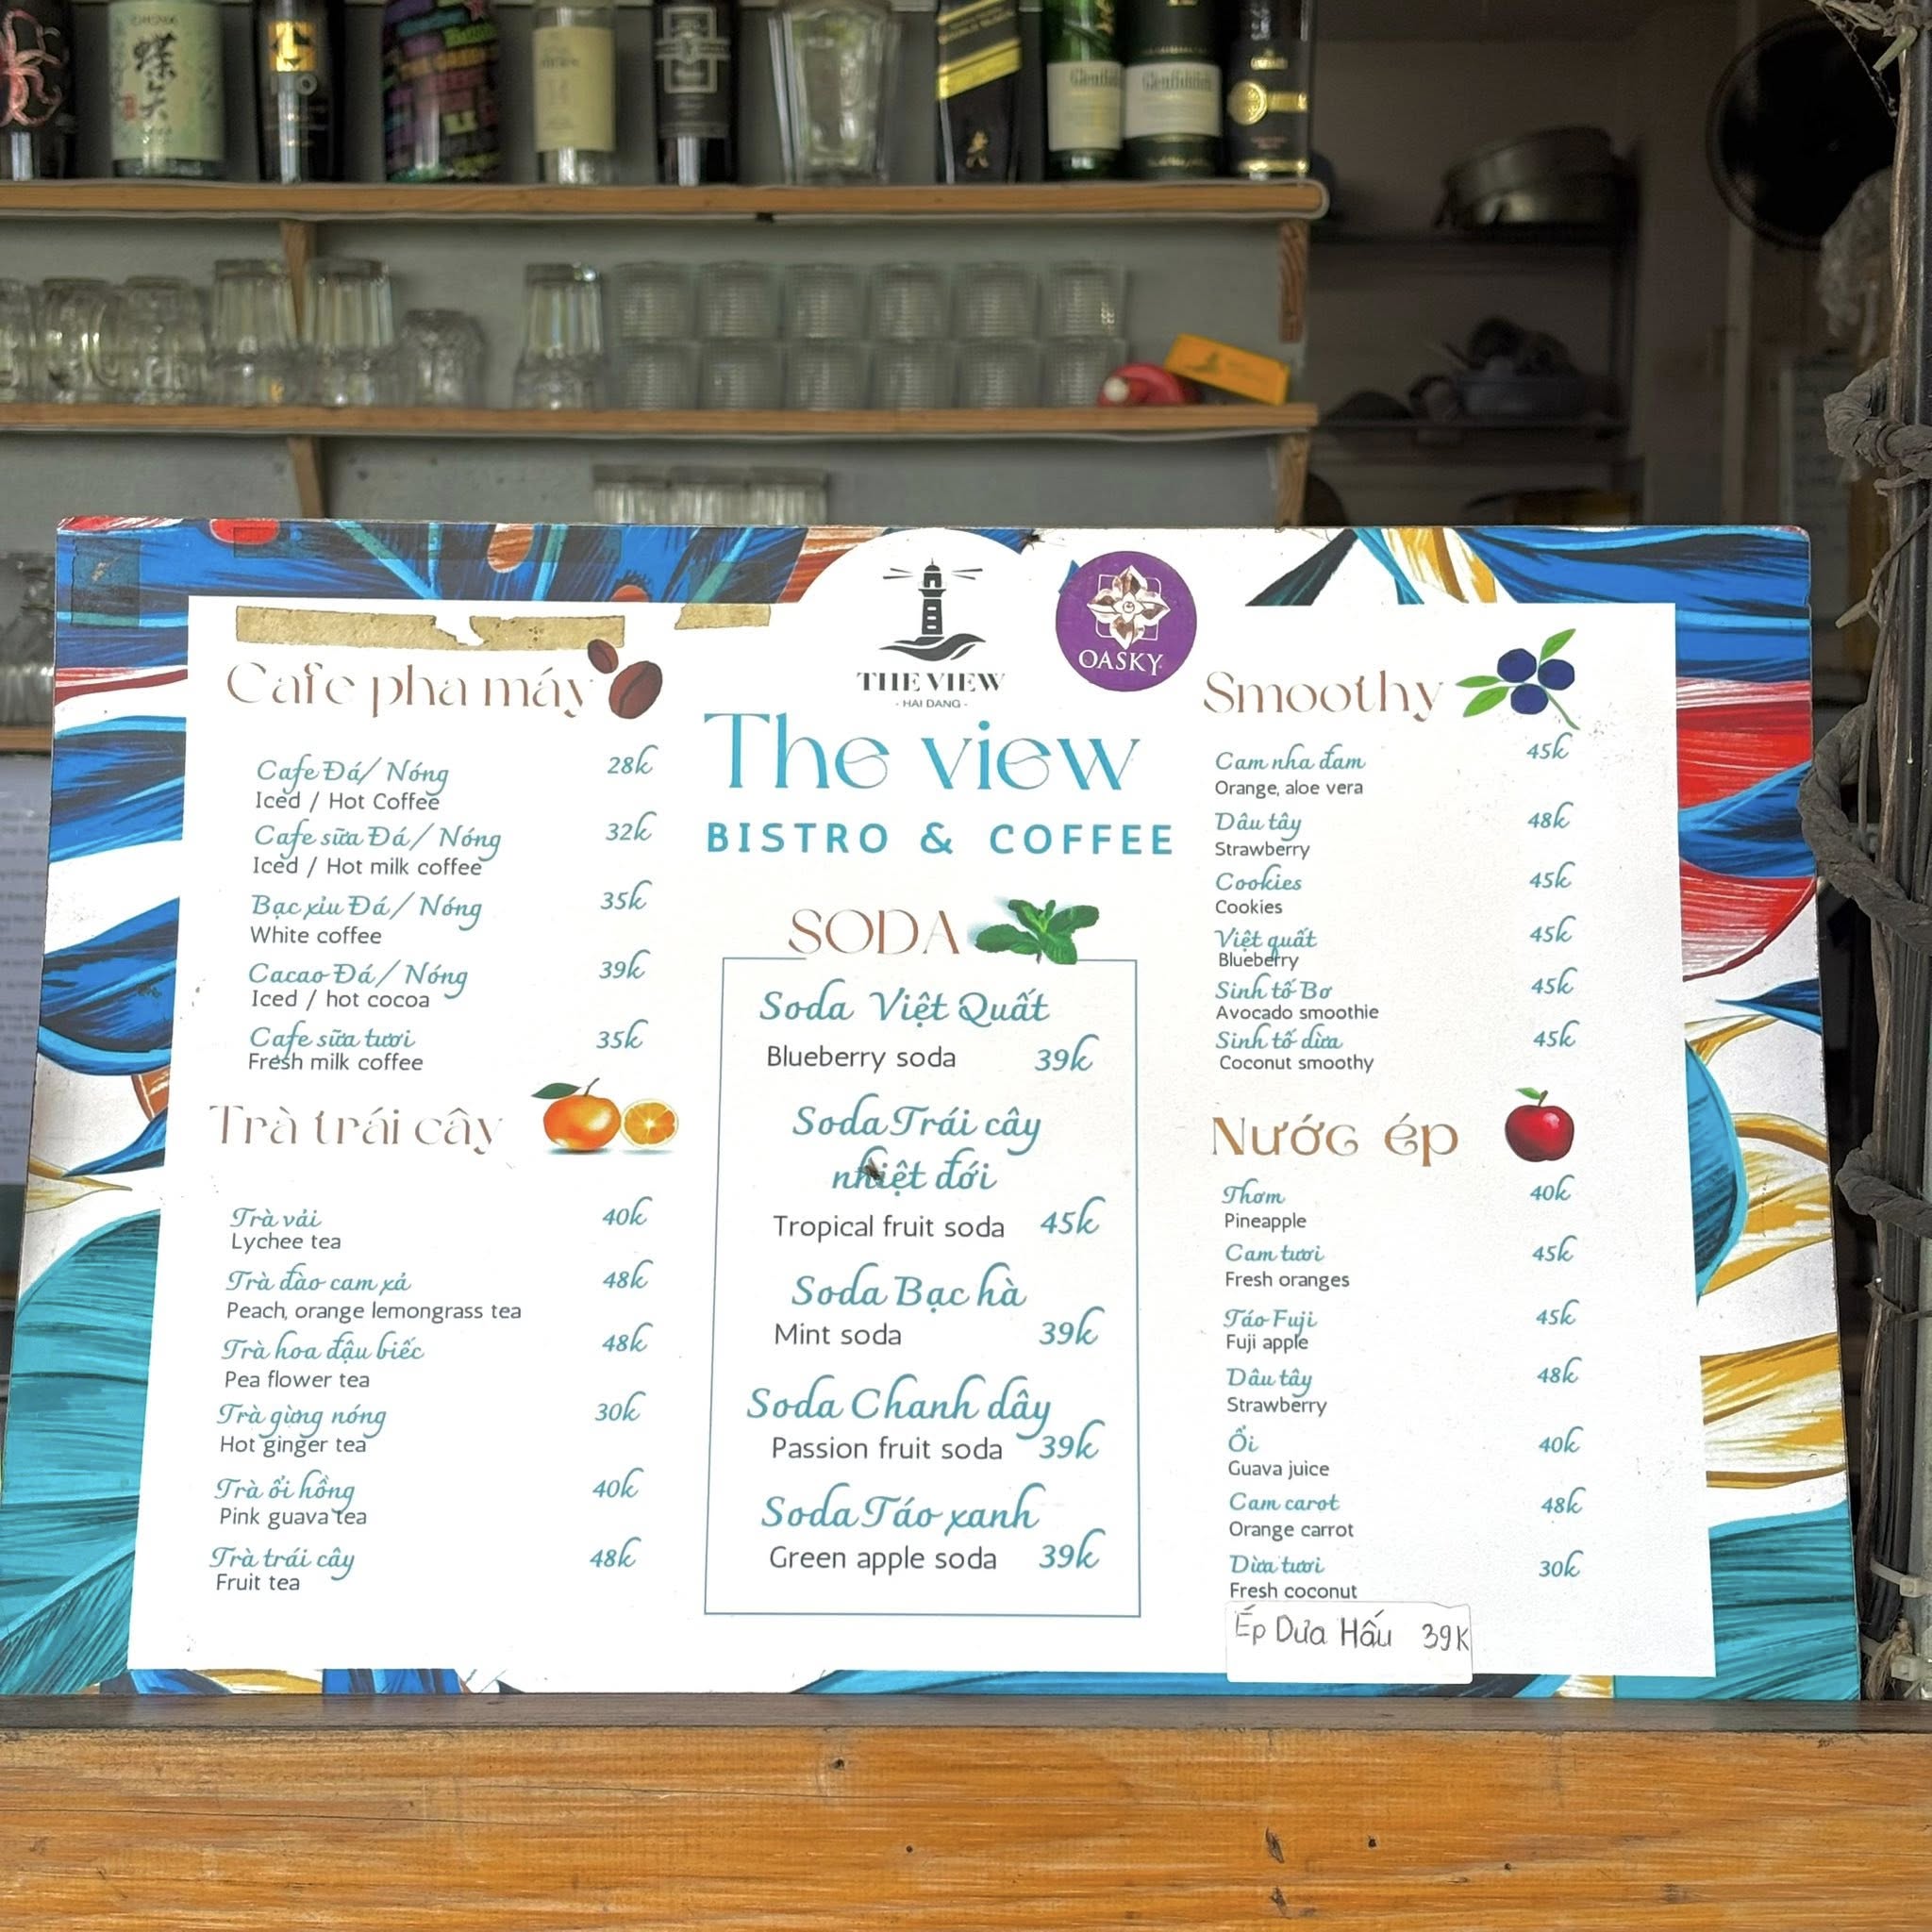 蝶
矢
Glenfiddich
Glenfiddich
THE VIEW
- HAI DANG -
OASKY
The view
BISTRO & COFFEE
Cafe pha máy
Cafe Đá/ Nóng 28k
Iced / Hot Coffee
Cafe sữa Đá/ Nóng 32k
Iced / Hot milk coffee
Bạc xỉu Đá/ Nóng 35k
White coffee
Cacao Đá/ Nóng 39k
Iced / hot cocoa
Cafe sữa tươi 35k
Fresh milk coffee
Trà trái cây
Trà vải 40k
Lychee tea
Trà đào cam xả 48k
Peach, orange lemongrass tea
Trà hoa đậu biếc 48k
Pea flower tea
Trà gừng nóng 30k
Hot ginger tea
Trà ổi hồng 40k
Pink guava tea
Trà trái cây 48k
Fruit tea
SODA
Soda Việt Quất
Blueberry soda 39k
Soda Trái cây
nhiệt đới
Tropical fruit soda 45k
Soda Bạc hà
Mint soda 39k
Soda Chanh dây
Passion fruit soda 39k
Soda Táo xanh
Green apple soda 39k
Smoothy
Cam nha đam 45k
Orange, aloe vera
Dâu tây 48k
Strawberry
Cookies 45k
Cookies
Việt quất 45k
Blueberry
Sinh tố Bơ 45k
Avocado smoothie
Sinh tố dừa 45k
Coconut smoothy
Nước ép
Thơm 40k
Pineapple
Cam tươi 45k
Fresh oranges
Táo Fuji 45k
Fuji apple
Dâu tây 48k
Strawberry
Ổi 40k
Guava juice
Cam carot 48k
Orange carrot
Dừa tươi 30k
Fresh coconut
Ép Dưa Hấu 39K